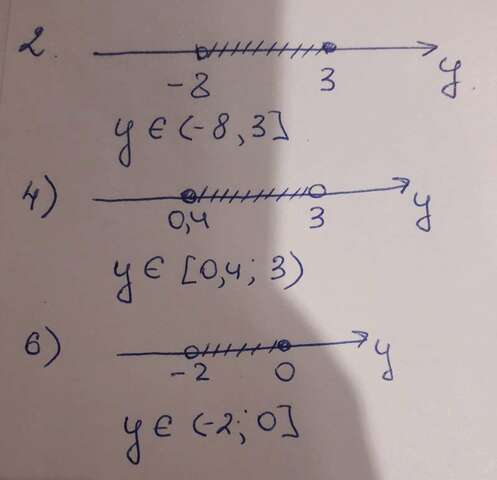 2.
y
-8 3
y ∈ (-8, 3]
4)
y
0,4 3
y ∈ [0,4; 3)
6)
y
-2 0
y ∈ (-2; 0]